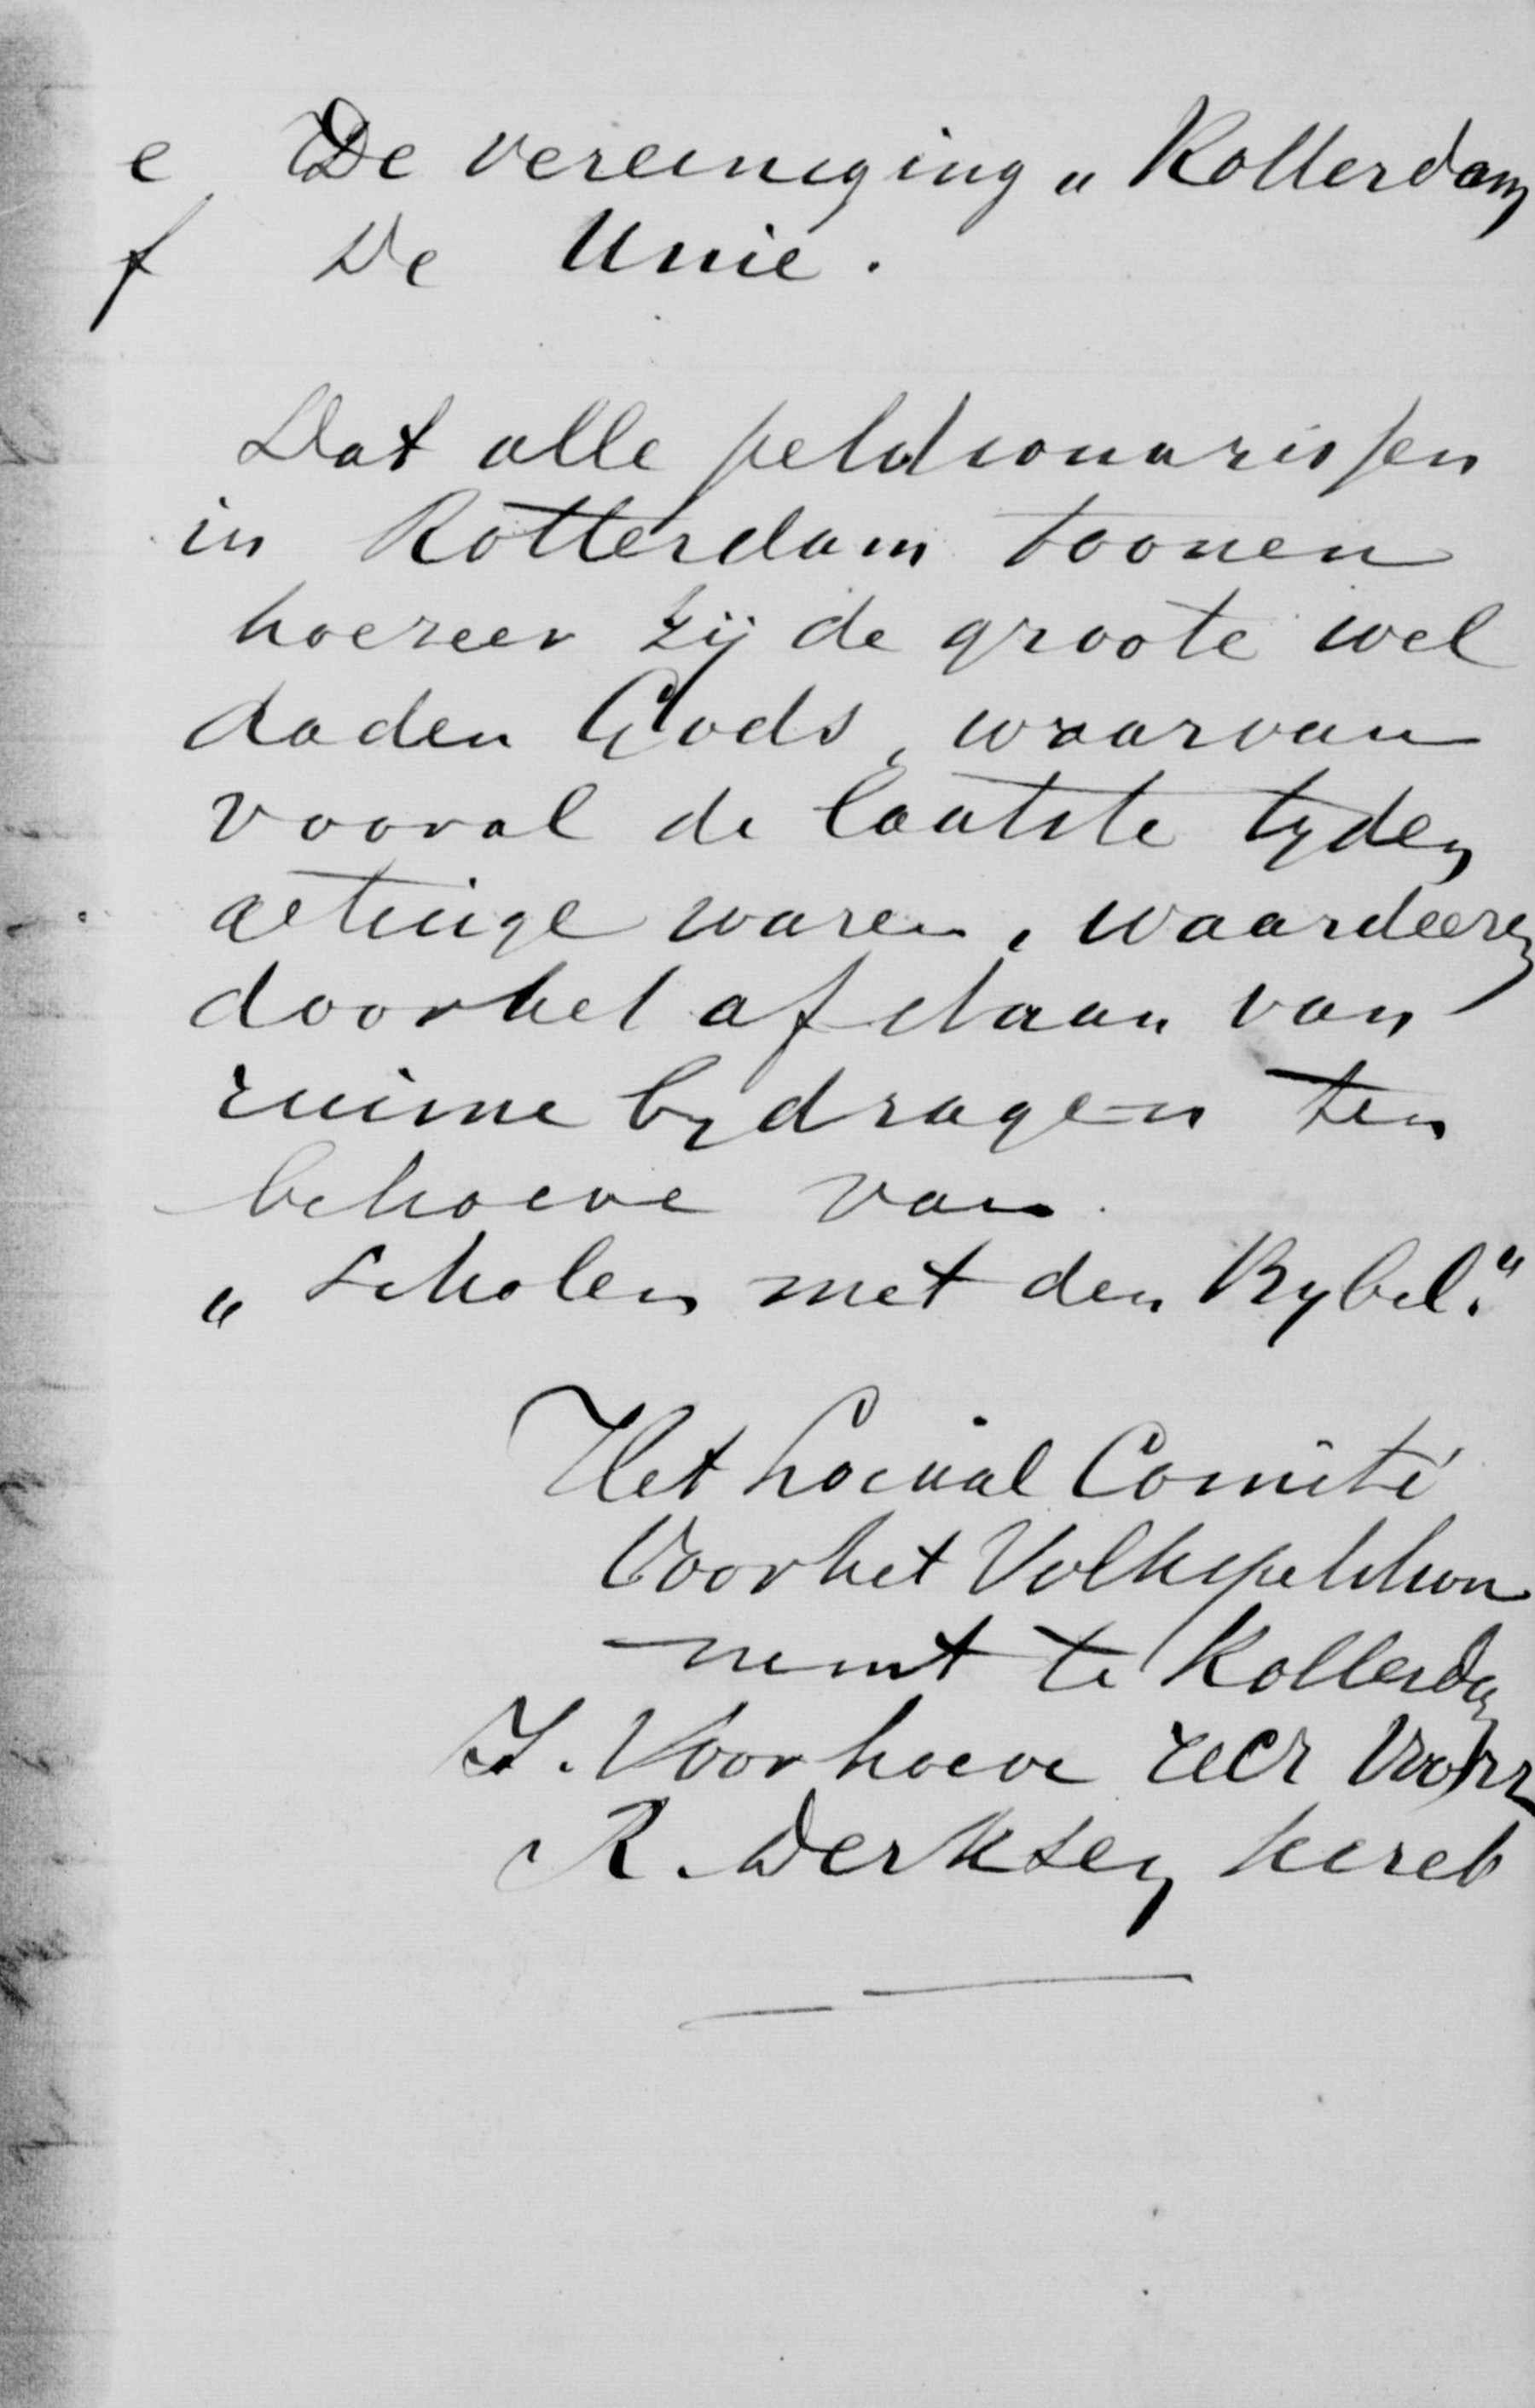 e De vereeniging „Rotterdam
f De Unie.
Dat alle petitionarissen
in Rotterdam toonen
hoezeer zij de groote wel
daden Gods, waarvan
vooral de laatste tyden
getuige waren, waardeeren
doorhet afstaan van
ruime bydragen ten
behoeve van
„Scholen met den Bybel."
Het Locaal Comité
Voorhet Volkspetition
nemt te Rotterdam
J. Voorhoeve HCzn Voorz
R. Derksen Secret